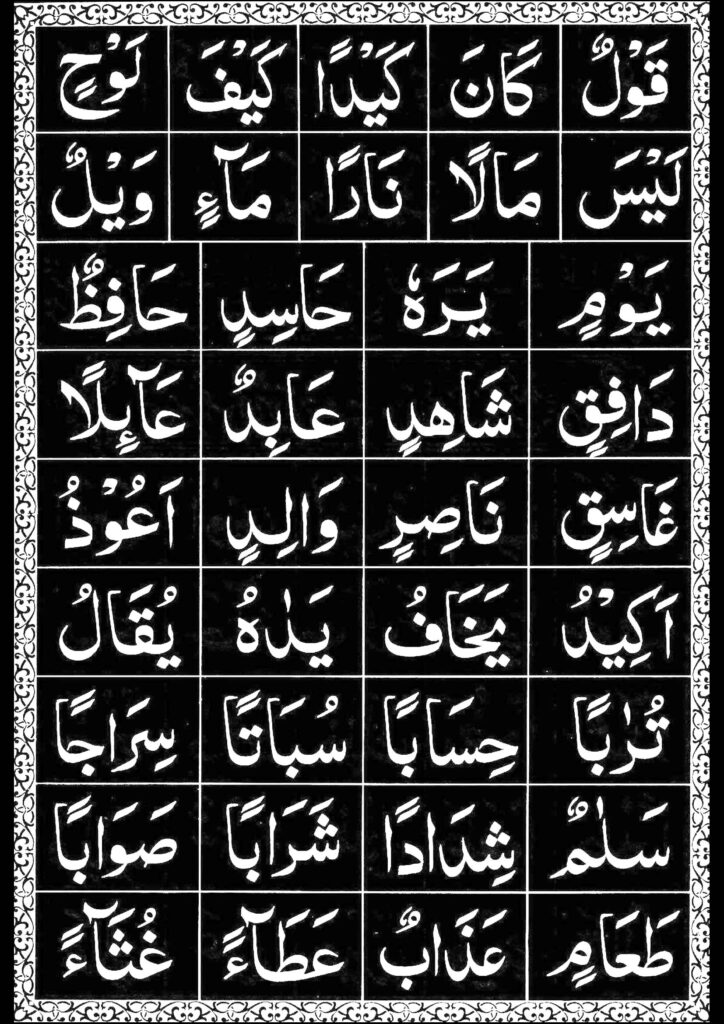 قَوْلٌ كَانَ كَيْدًا كَيْفَ لَوْحٍ
لَيْسَ مَالًا نَارًا مَآءٍ وَيْلٌ
يَوْمٍ يَرَهٗ حَاسِدٍ حَافِظٌ
دَافِقٍ شَاهِدٍ عَابِدٌ عَآئِلًا
غَاسِقٍ نَاصِرٍ وَالِدٍ اَعُوْذُ
اَكِيْدُ يَخَافُ يَدٰهُ يُقَالُ
تُرٰبًا حِسَابًا سُبَاتًا سِرَاجًا
سَلٰمٌ شِدَادًا شَرَابًا صَوَابًا
طَعَامٍ عَذَابٌ عَطَآءً غُثَآءً